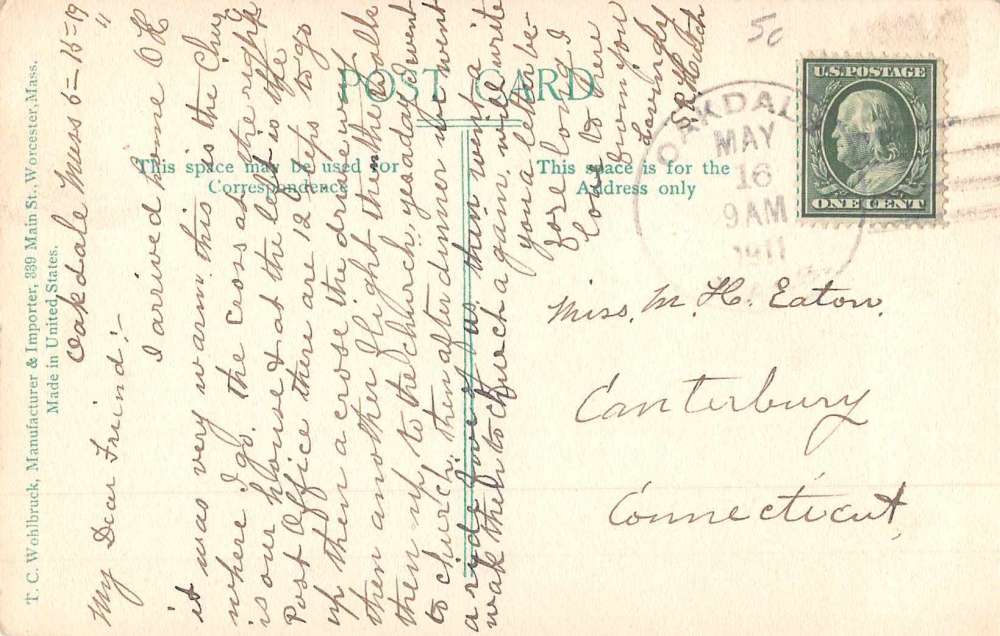 T. C. Wohlbruck, Manufacturer & Importer, 339 Main St., Worcester, Mass.
Made in United States.
POST CARD
This space may be used for
Correspondence
This space is for the
Address only
5c
U.S. POSTAGE
ONE CENT
OAKDALE
MAY
16
9 AM
1911
MASS
Oakdale Mass 5=15=19
11
My Dear Freind:-
I arrived home OK
it was very warm this is the Chur
where I go. the cross at the right
is our house & at the left is the
Post Office there are 12 steps to go
up then a crose the drive way
then another flight then the walk
then up to the church, yesaday went
to church, then after dinner we went
a ride five of us, then went a
walk then to church again. will write
you a letter be-
fore long I
long to see
you from you
Lovingly
Miss. M. H. Eaton.
Canterbury
Connecticut,